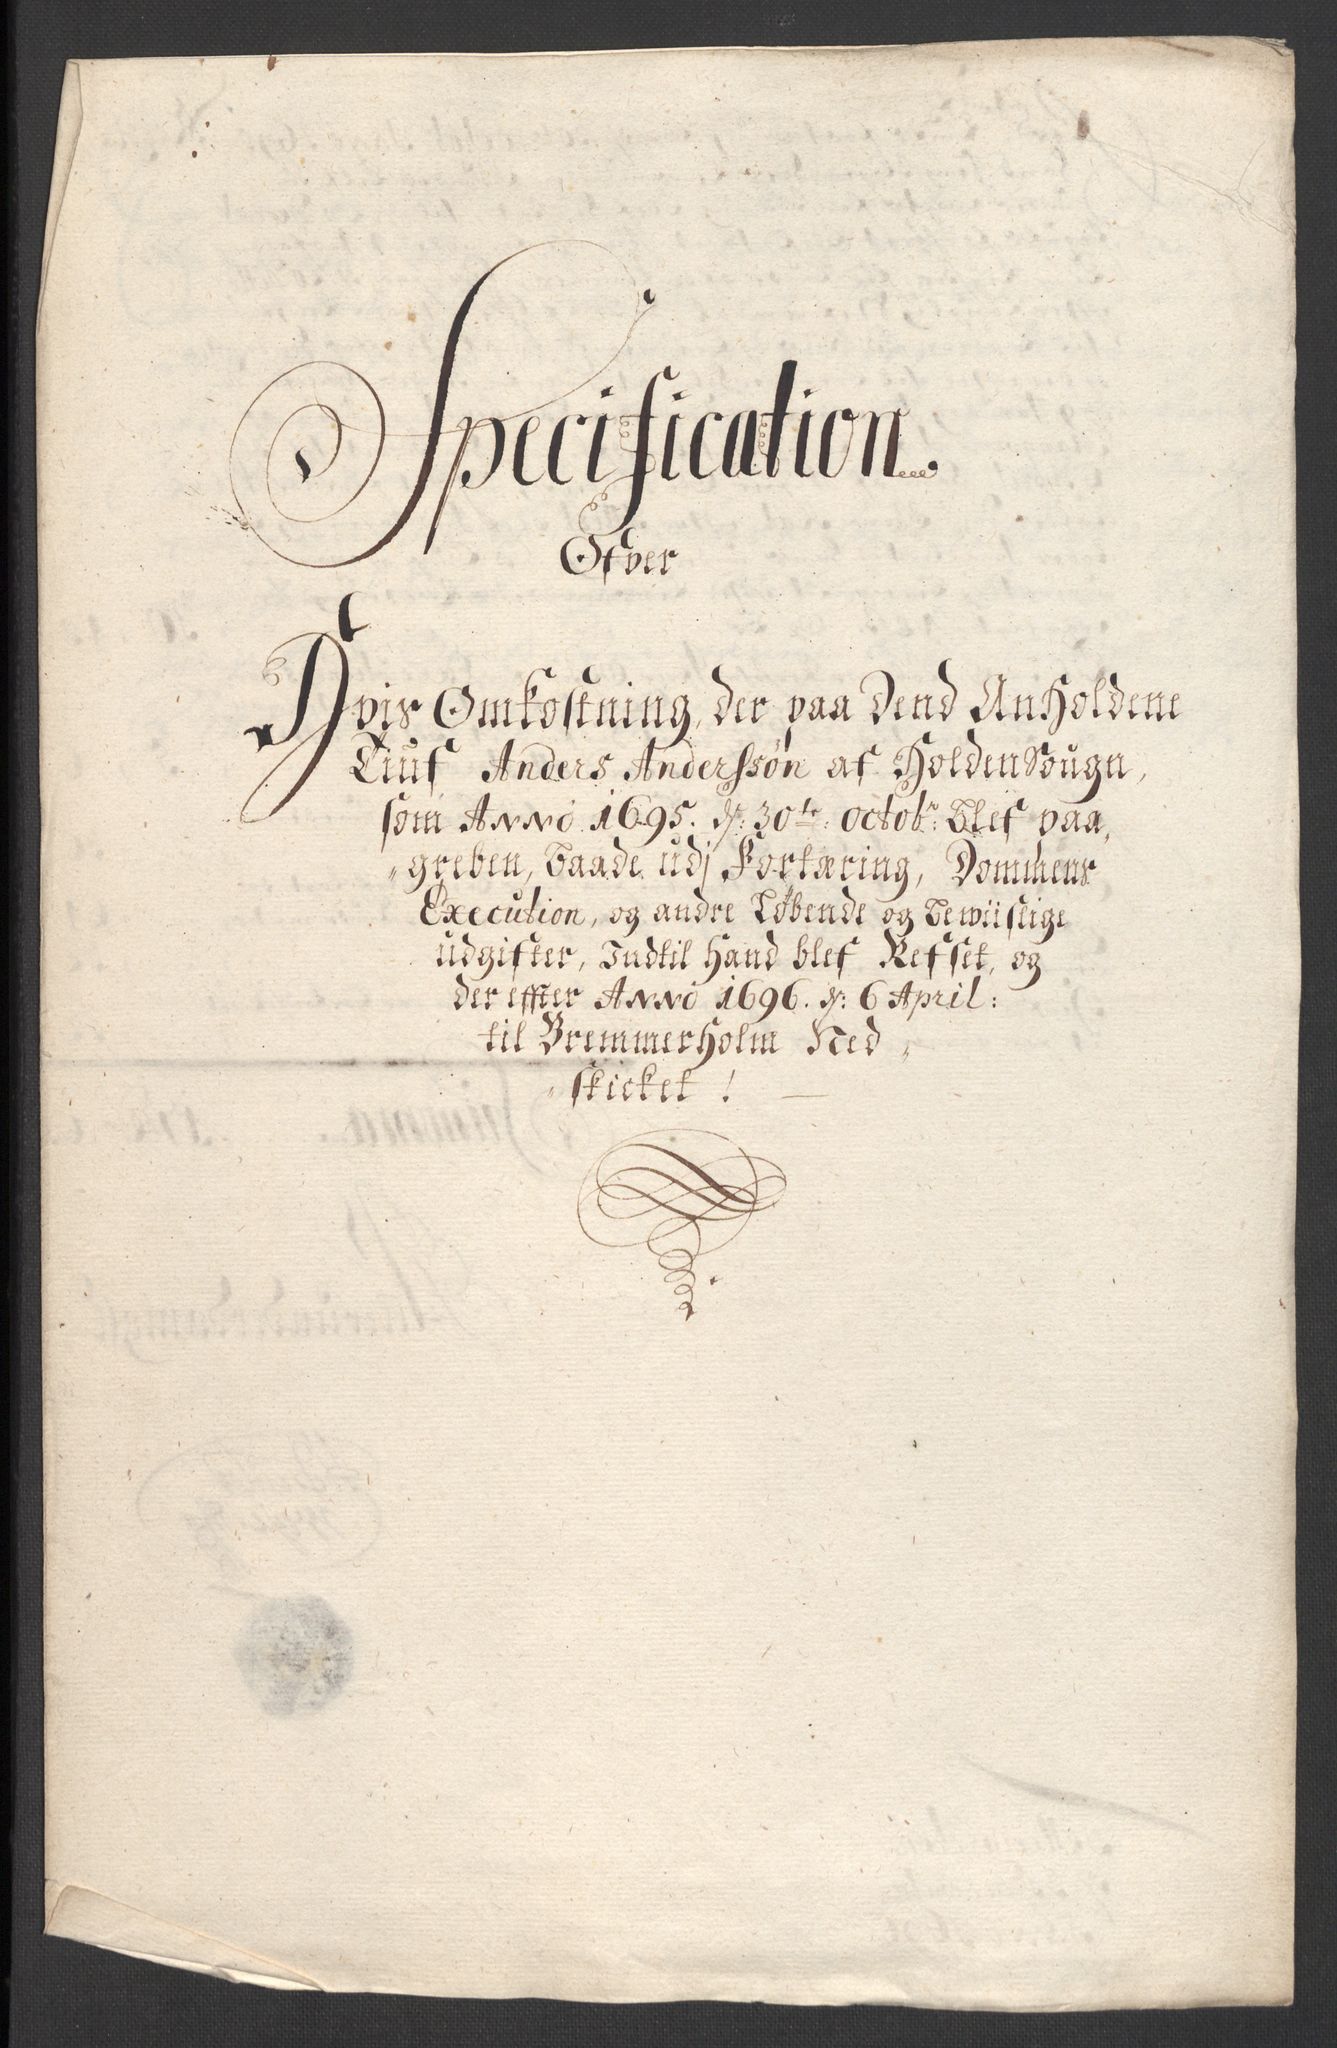 Specification.
Ofver
Hvis Omkostning, der paa Dend Anholdene
Tiuf Anders Anderssøn af Holden Sougn,
som Anno 1695. d: 30te: octobr: blef paa,
greben, baade udj Fortæring, Dommens
Execution, og andre Løbende og bewiislige
udgifter, Indtil hand blef Refset, og
der effter Anno 1696. d: 6 April:
til Bremmerholm Ned,
skicket! —